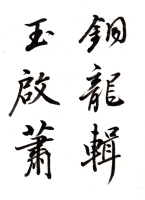 銅龍輯
玉啟蕭